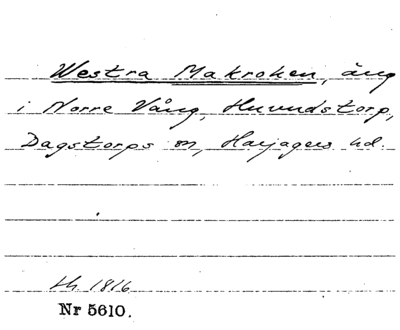 Westra Makroken, äng
i Norre Vång, Huvudstorp,
Dagstorps sn, Harjagers hd.
lh 1816
Nr 5610.